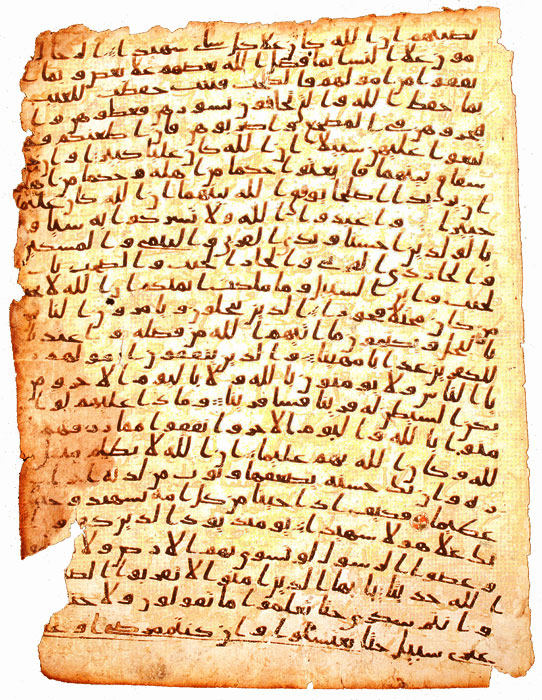 نصيبهم ان الله كان علا كل شاى شهيدا الرجال
قومون علا النسا بما فضل الله بعضهم علا بعض وبما
نفقوا من امولهم فالصلحت قنتت حفظت للغيب
بما حفظ الله والتي تخافون نشوزهن فعظوهن وا
هجروهن في المضجع واضربوهن فان اطعنكم فلا
تبغوا عليهن سبيلا ان الله كان عليا كبيرا وان خفتم
شقاق بينهما فابعثوا حكما من اهله وحكما من اهلها
ان يريدا اصلحا يوفق الله بينهما ان الله كان عليما
خبيرا واعبدوا الله ولا تشركوا به شيا و
بالولدين احسنا وبذي القربى واليتمى والمسكين
والجار ذي القربى والجار الجنب والصحب با
لجنب وابن السبيل وما ملكت ايمنكم ان الله لا يحب
من كان مختلا فخورا الذين يبخلون ويامرون الناس
بالبخل ويكتمون ما اتيهم الله من فضله واعتدنا
للكفرين عذابا مهينا والذين ينفقون امولهم ر
يا الناس ولا يومنون بالله ولا باليوم الاخر ومن
يكن الشيطن له قرينا فسا قرينا وماذا عليهم لو ا
منوا بالله واليوم الاخر وانفقوا مما رزقهم ا
لله وكان الله بهم عليما ان الله لا يظلم مثقل
ذرة وان تك حسنة يضعفها ويوت من لدنه اجرا
عظيما فكيف اذا جينا من كل امة بشهيد وجينا
بك علا هولا شهيدا يومئذ يود الذين كفروا
وعصوا الرسول لو تسوى بهم الارض ولا
الله حديثا يايها الذين امنوا لا تقربوا الصلوة
وانتم سكرى حتا تعلموا ما تقولون ولا جنبا
على سبيل حتا تغتسلوا وان كنتم مرضى او على